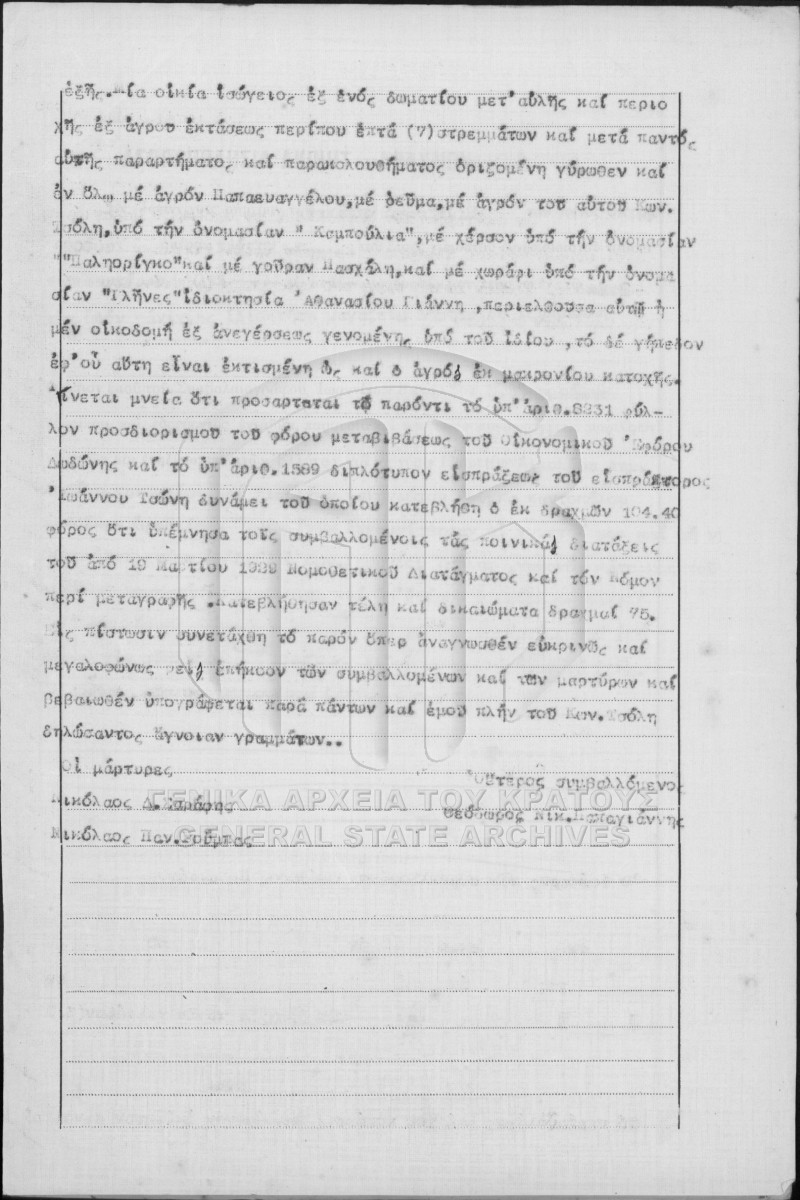 ἑξῆς.Μία οἰκία ἰσόγειος ἐξ ἑνός δωματίου μετ'αὐλῆς καί περιο
χῆς ἐξ ἀγροῦ ἐκτάσεως περίπου ἑπτά (7)στρεμμάτων καί μετά παντός
αὐτῆς παραρτήματος καί παρακολουθήματος ὁριζομένη γύρωθεν καί
ἐν ὅλῳ μέ ἀγρόν Παπαευαγγέλου,μέ ρεῦμα,μέ ἀγρόν τοῦ αὐτοῦ Κων.
Τσόλη,ὑπό τήν ὀνομασίαν " Καμπούλια",μέ χέρσον ὑπό τήν ὀνομασίαν
""Παληορίγκο"καί μέ γοῦραν Πασχάλη,καί μέ χωράφι ὑπό τήν ὀνομα
σίαν "Γλῆνες"ἰδιοκτησία 'Αθανασίου Γιάννη ,περιελθοῦσα αὐτῷ ἡ
μέν οἰκοδομή ἐξ ἀνεγέρσεως γενομένης ὑπό τοῦ ἰδίου ,τό δέ γήπεδον
ἐφ'οὗ αὕτη εἶναι ἐκτισμένη ὡς καί ὁ ἀγρός ἐκ μακρονίου κατοχῆς.
Γίνεται μνεία ὅτι προσαρτᾶται τῷ παρόντι τό ὑπ'ἀριθ.8231 φύλ-
λον προσδιορισμοῦ τοῦ φόρου μεταβιβάσεως τοῦ Οἰκονομικοῦ 'Εφόρου
Δωδώνης καί τό ὑπ'ἀριθ.1589 διπλότυπον εἰσπράξεως τοῦ εἰσπράκτορος
'Ιωάννου Τσώνη δυνάμει τοῦ ὁποίου κατεβλήθη ὁ ἐκ δραχμῶν 104.40
φόρος ὅτι ὑπέμνησα τοῖς συμβαλλομένοις τάς ποινικάς διατάξεις
τοῦ ἀπό 19 Μαρτίου 1932 Νομοθετικοῦ Διατάγματος καί τόν Νόμον
περί μεταγραφῆς .Κατεβλήθησαν τέλη καί δικαιώματα δραχμαί 75.
Εἰς πίστωσιν συνετάχθη τό παρόν ὅπερ ἀναγνωσθέν εὐκρινῶς καί
μεγαλοφώνως εἰς ἐπήκοον τῶν συμβαλλομένων καί τῶν μαρτύρων καί
βεβαιωθέν ὑπογράφεται παρά πάντων καί ἐμοῦ πλήν τοῦ Κων.Τσόλη
δηλώσαντος ἄγνοιαν γραμμάτων..
Οἱ μάρτυρες
'Ο ὕτερος συμβαλλόμενος
Νικόλαος Δ.
Θεόδωρος Νικ.Παπαγιάννης
Νικόλαος Παν.
ΓΕΝΙΚΑ ΑΡΧΕΙΑ ΤΟΥ ΚΡΑΤΟΥΣ
GENERAL STATE ARCHIVES